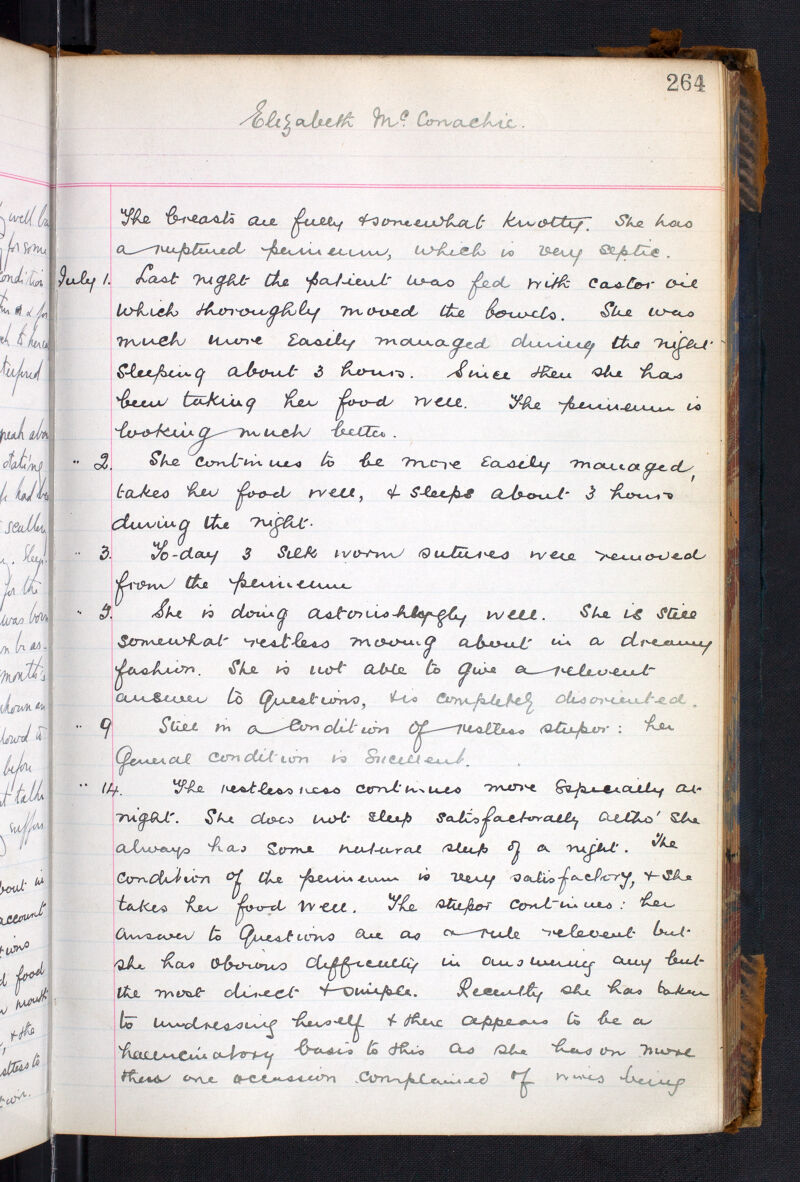 264
Elizabeth Mc Conachie.
The breasts are fully & somewhat knotty. She has
a ruptured perineum, which is very septic.
July 1. Last night the patient was fed with castor oil
which thoroughly moved the bowels. She was
much more Easily managed during the night
sleeping about 3 hours. Since then she has
been taking her food well. The perineum is
looking much better.
" 2. She continues to be more Easily managed,
takes her food well, & sleeps about 3 hours
during the night.
" 3. To-day 3 Silk worm sutures were removed
from the perineum
" She is doing astonishingly well. She is still
somewhat restless moving about in a dreamy
fashion. She is not able to give a relevent
answer to Questions, & is completely disoriented.
" 9 Still in a Condition of restless stupor: her
General condition is Excellent.
" 14. The restlessness continues more Especially at
night. She does not sleep satisfactorally altho' she
always has some natural sleep of a night. The
condition of the perineum is very satisfactory, & she
takes her food well. The stupor continues: her
answer to Questions are as a rule relevent but
she has obvious difficulty in answering any but
the most direct & simple. Recently she has taken
to undressing herself & there appears to be a
hallucinatory basis to this as she has on more
than one occassion complained of wires being
well
for some
condition
for
months
before
talks
about in
account
food
mouth
& the